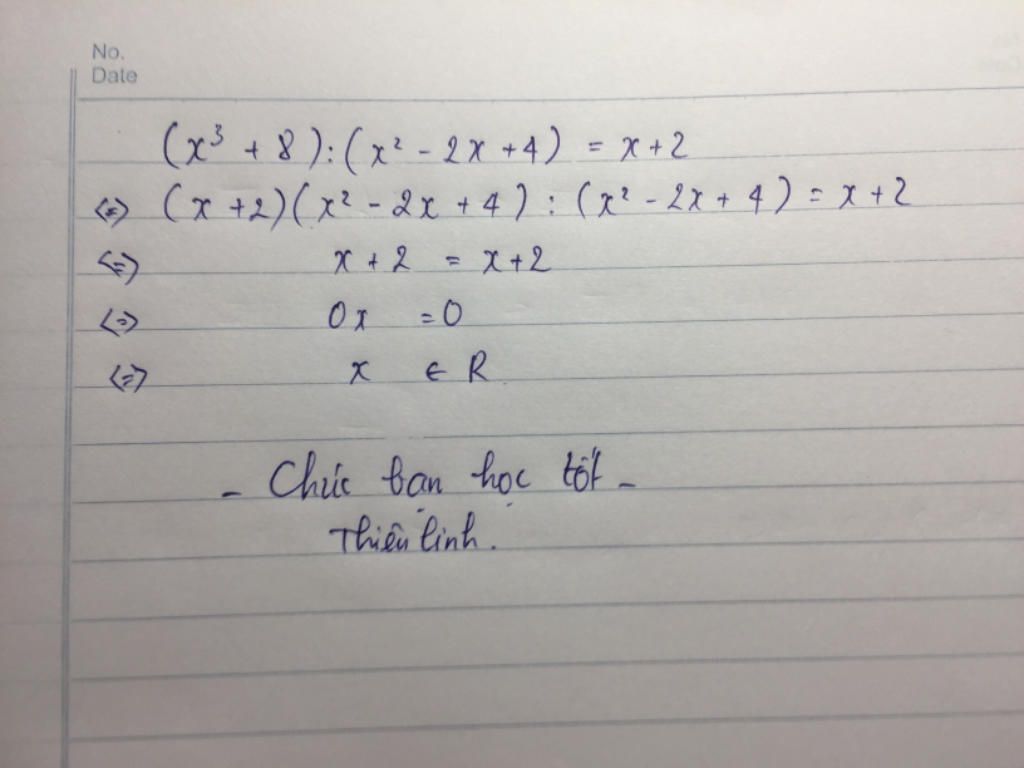 No.
Date
(x³ + 8):(x² - 2x + 4) = x + 2
<=> (x + 2)(x² - 2x + 4) : (x² - 2x + 4) = x + 2
<=> x + 2 = x + 2
<=> 0x = 0
<=> x ∈ R
- Chúc bạn học tốt -
Thiên linh.